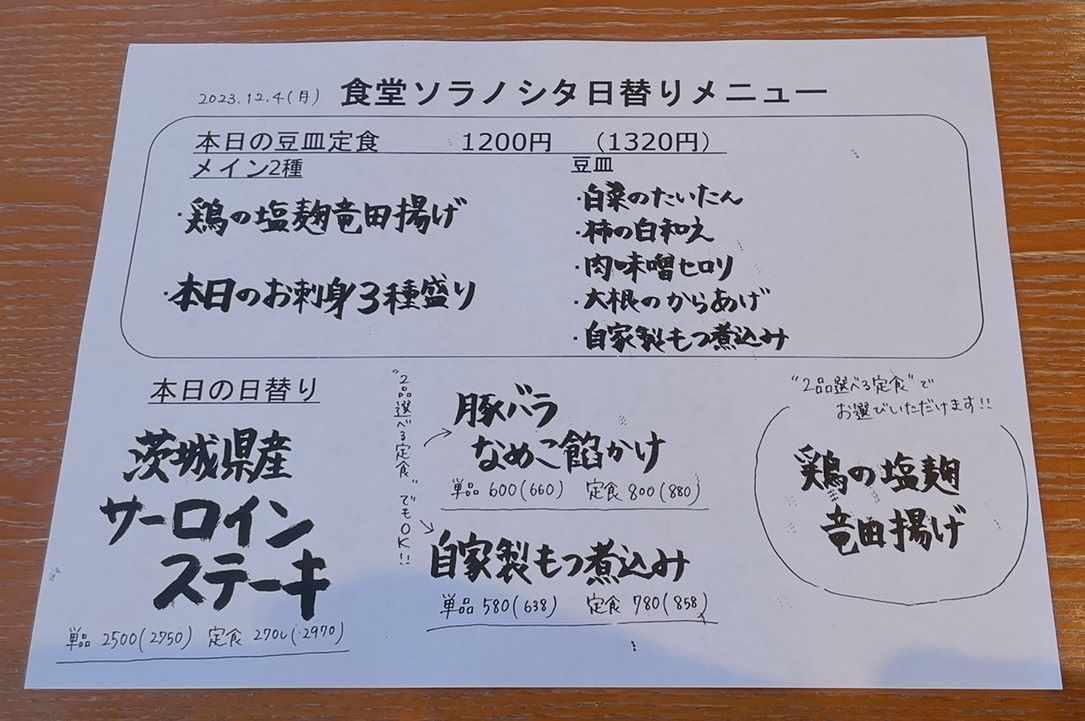 2023.12.4(月) 食堂ソラノシタ日替りメニュー
本日の豆皿定食 1200円 (1320円)
メイン2種
・鶏の塩麹竜田揚げ
・本日のお刺身3種盛り
豆皿
・白菜のたいたん
・柿の白和え
・肉味噌セロリ
・大根のからあげ
・自家製もつ煮込み
本日の日替り
茨城県産
サーロイン
ステーキ
単品 2500(2750) 定食 2700(2970)
"2品選べる定食"でもOK!!
豚バラ
なめこ餡かけ
単品 600(660) 定食 800(880)
自家製もつ煮込み
単品 580(638) 定食 780(858)
"2品選べる定食"で
お選びいただけます!!
鶏の塩麹
竜田揚げ